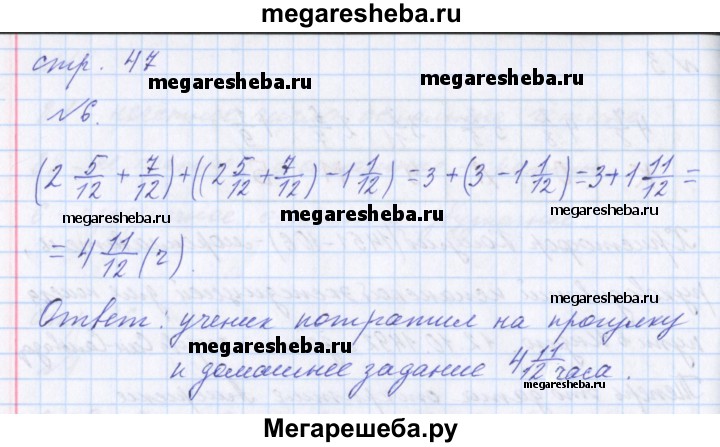 megaresheba.ru
стр. 47
megaresheba.ru
№6.
(2 5/12 + 7/12) + ((2 5/12 + 7/12) - 1 1/12) = 3 + (3 - 1 1/12) = 3 + 1 11/12 =
megaresheba.ru megaresheba.ru megaresheba.ru
= 4 11/12 (ч).
megaresheba.ru
Ответ: ученик потратил на прогулку
megaresheba.ru
и домашнее задание 4 11/12 часа.
megaresheba.ru
Мегарешеба.ру